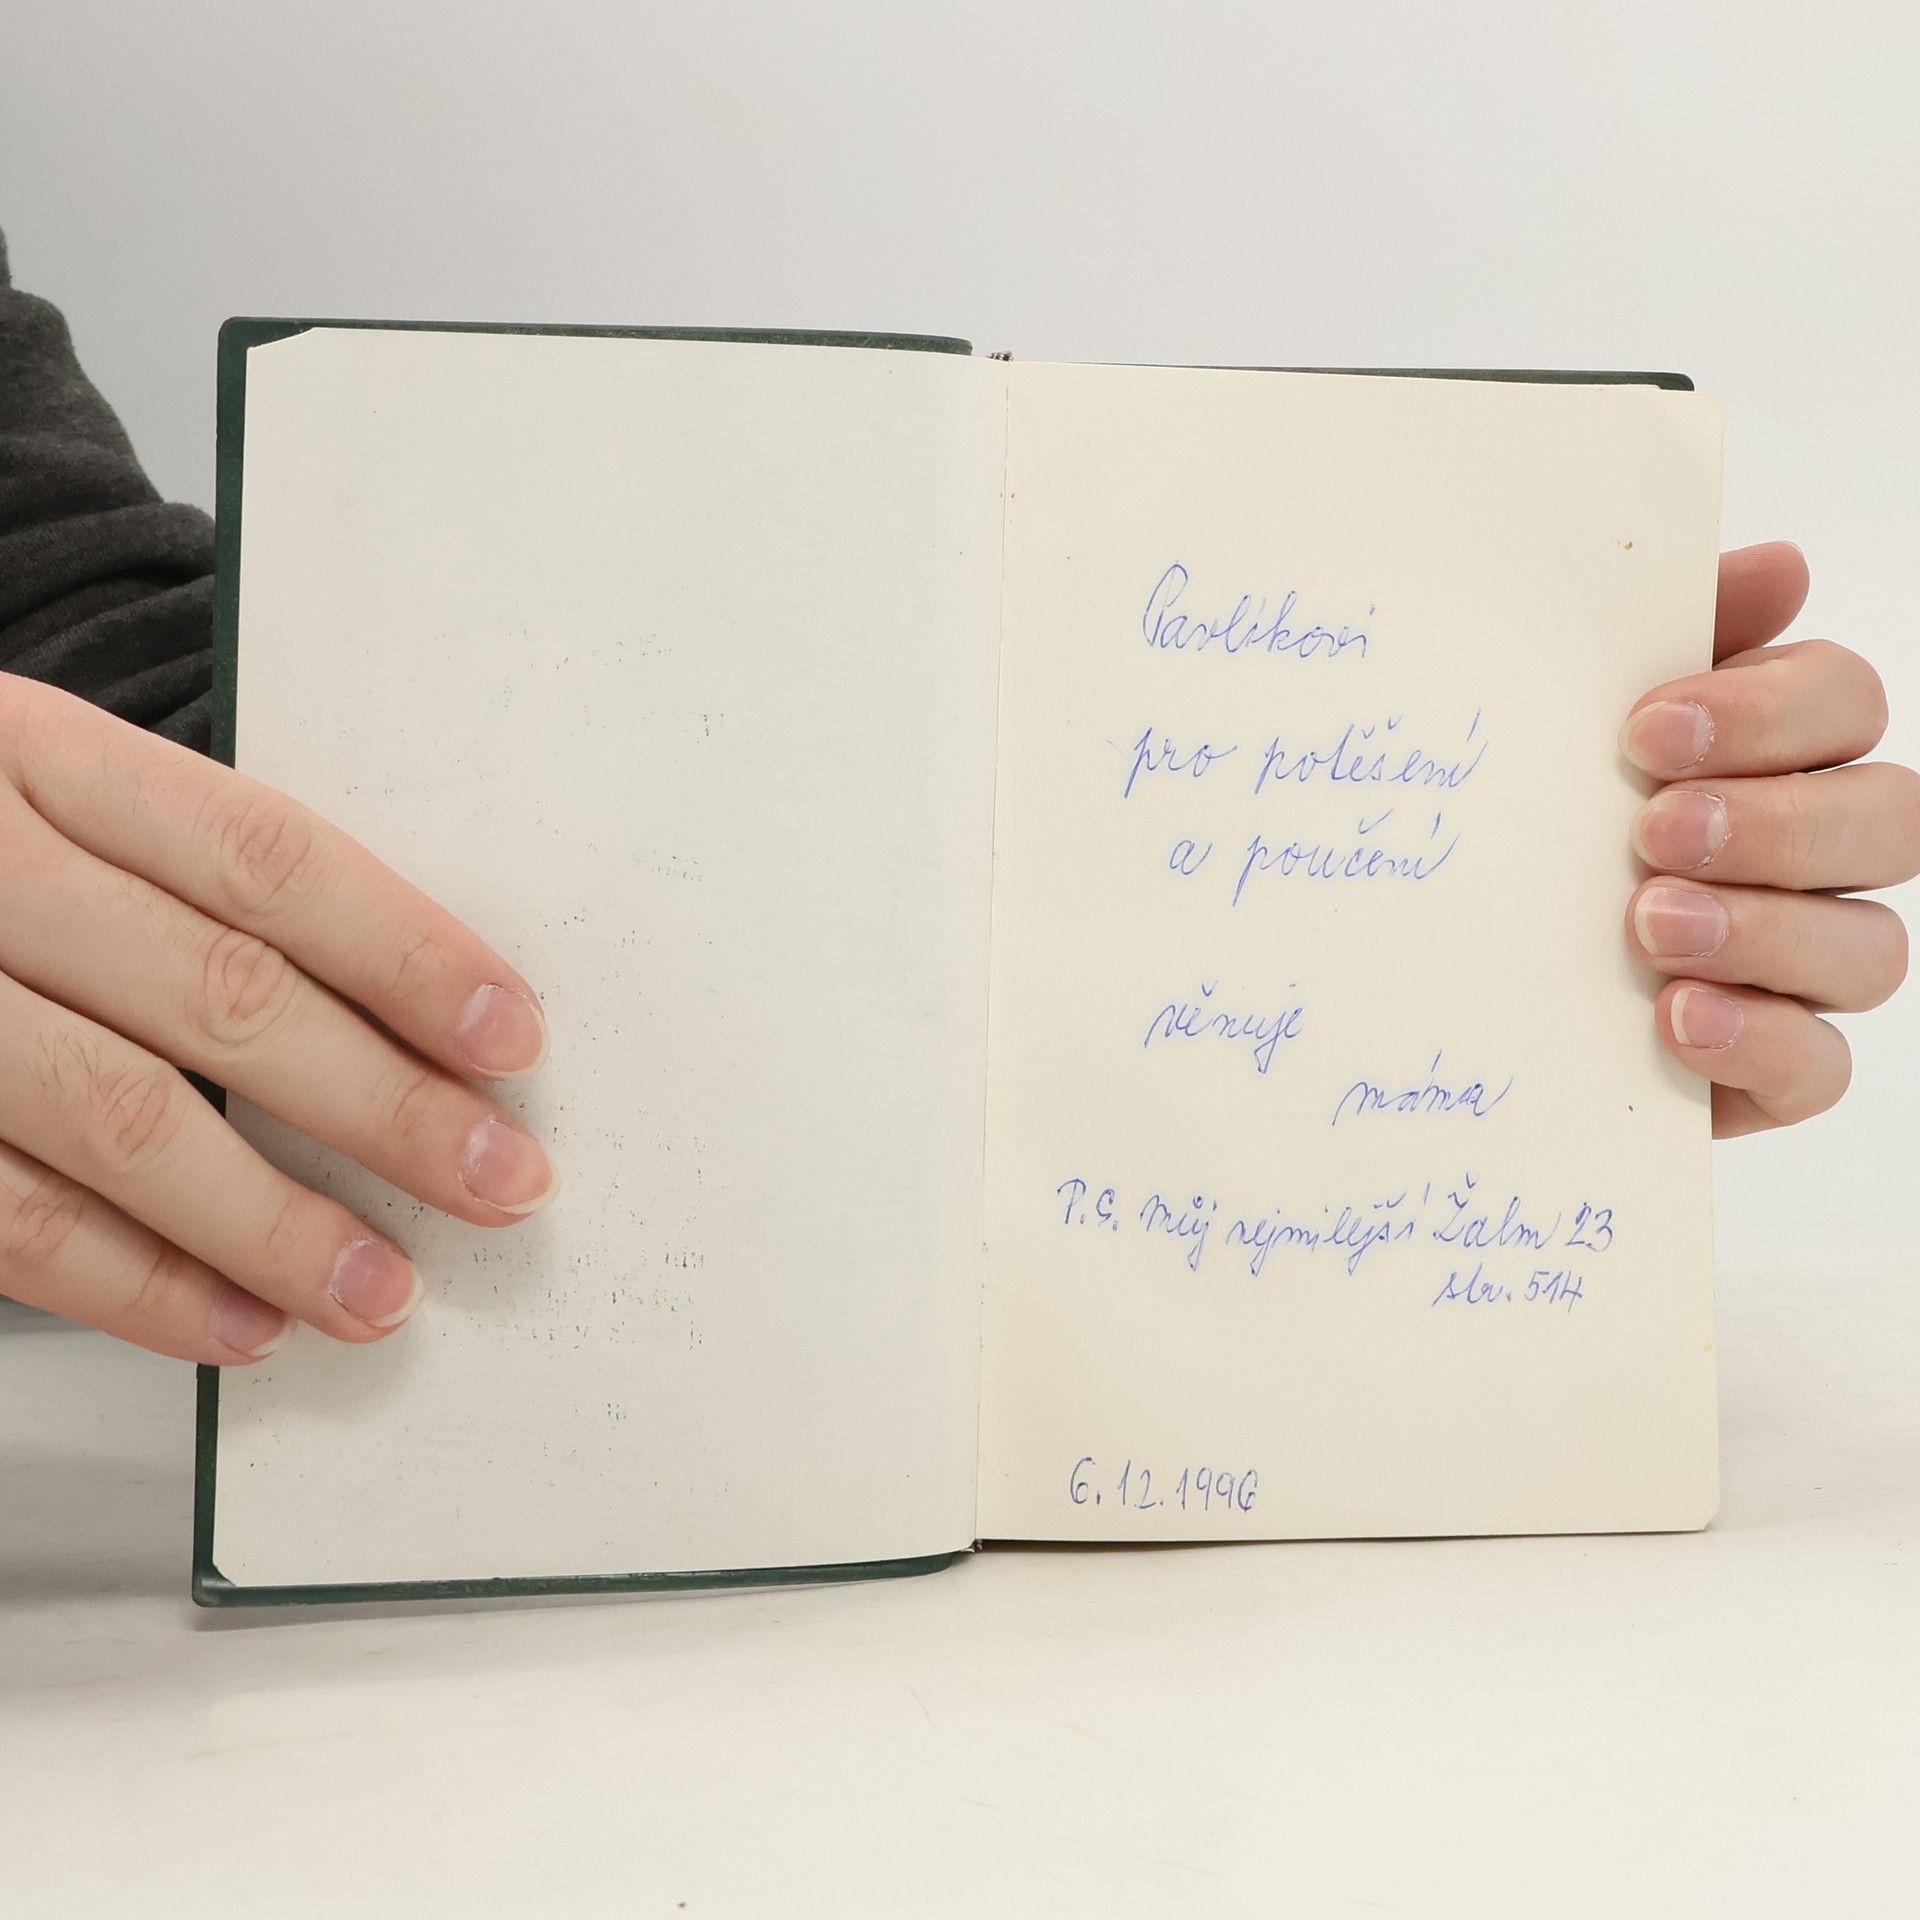 Pavlíkovi
pro potěšení
a poučení
věnuje
máma
P.S. Můj nejmilejší Žalm 23
str. 514
6.12.1996